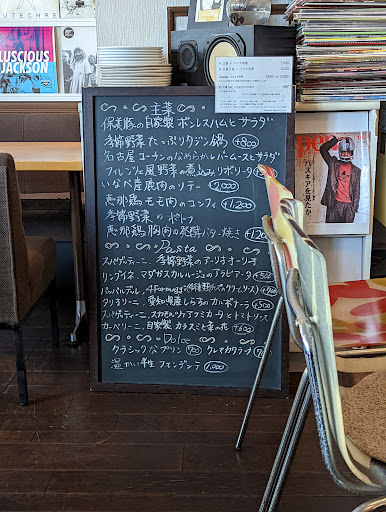 UTECHRE
LUSCIOUS
JACKSON
1,000
1,000
pen
バスキアを見たか。
主菜
保美豚の自家製 ボンレスハムとサラダ
季節野菜 たっぷりタジン鍋 +800
名古屋コーチンのなめらかレバームースとサラダ
フィレンツェ風 野菜の煮込み リボリータ
いなべ産鹿肉のソテー +2,000
恵那鶏 モモ肉のコンフィ +1,200
季節野菜のポトフ
恵那鶏 胸肉の発酵バター焼き
Pasta
スパゲティーニ、季節野菜のアーリオオーリオ
リングイネ、マダガスカルルージュのアラビアータ +500
パッパルデレ, 4Formaggi クリームソース
タリオリーニ、愛知県産しらすのカルボナーラ +500
スパゲティーニ、スカモルツァアフミカータとトマトソース
カーペリーニ、自家製カラスミと葉の花 +800
Dolce
クラシックなプリン クレマカタラーナ
温かい半生 フォンダンテ 1,000